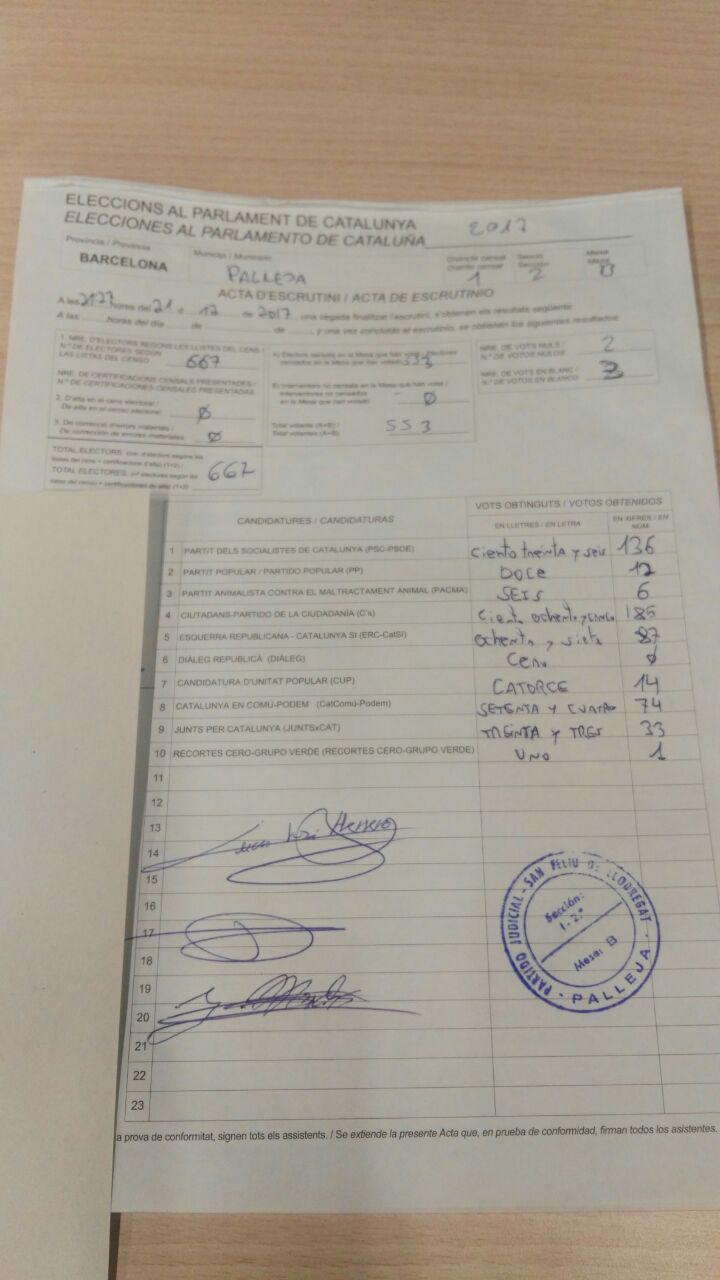 ELECCIONS AL PARLAMENT DE CATALUNYA
ELECCIONES AL PARLAMENTO DE CATALUÑA 2017
Província / Provincia
BARCELONA
Municipi / Municipio
PALLEJA
Districte censal
Distrito censal
1
Secció
Sección
2
Mesa
Mesa
B
ACTA D'ESCRUTINI / ACTA DE ESCRUTINIO
A les 21:27 hores del 21 de 12 de 2017, una vegada finalitzat l'escrutini, s'obtenen els resultats següents:
A las horas del día de de , y una vez concluido el escrutinio, se obtienen los siguientes resultados:
1. NRE. D'ELECTORS SEGONS LES LLISTES DEL CENS /
N.º DE ELECTORES SEGÚN
LAS LISTAS DEL CENSO 667
NRE. DE CERTIFICACIONS CENSALS PRESENTADES /
N.º DE CERTIFICACIONES CENSALES PRESENTADAS
2. D'alta en el cens electoral /
De alta en el censo electoral: ø
3. De correcció d'errors materials /
De corrección de errores materiales: ø
TOTAL ELECTORS
TOTAL ELECTORES 667
A) Electors censats en la Mesa que han votat / Electores
censados en la Mesa que han votado 553
B) Interventors no censats en la Mesa que han votat /
Interventores no censados
en la Mesa que han votado ø
Total votants (A+B) /
Total votantes (A+B) 553
NRE. DE VOTS NULS /
N.º DE VOTOS NULOS 2
NRE. DE VOTS EN BLANC /
N.º DE VOTOS EN BLANCO 3
CANDIDATURES / CANDIDATURAS
VOTS OBTINGUTS / VOTOS OBTENIDOS
EN LLETRES / EN LETRA
EN XIFRES / EN NÚM.
1 PARTIT DELS SOCIALISTES DE CATALUNYA (PSC-PSOE) Ciento treinta y seis 136
2 PARTIT POPULAR / PARTIDO POPULAR (PP) DOCE 12
3 PARTIT ANIMALISTA CONTRA EL MALTRACTAMENT ANIMAL (PACMA) SEIS 6
4 CIUTADANS-PARTIDO DE LA CIUDADANÍA (C's) Ciento ochenta y cinco 185
5 ESQUERRA REPUBLICANA - CATALUNYA SÍ (ERC-CatSí) ochenta y siete 87
6 DIÀLEG REPUBLICÀ (DIÀLEG) Cero ø
7 CANDIDATURA D'UNITAT POPULAR (CUP) CATORCE 14
8 CATALUNYA EN COMÚ-PODEM (CatComú-Podem) SETENTA Y CUATRO 74
9 JUNTS PER CATALUNYA (JUNTSxCAT) TREINTA Y TRES 33
10 RECORTES CERO-GRUPO VERDE (RECORTES CERO-GRUPO VERDE) UNO 1
11
12
13
14
15
16
17
18
19
20
21
22
23
PARTIDO JUDICIAL - SAN FELIU DE LLOBREGAT
Sección:
1.-2.ª
Mesa: B
PALLEJA
a prova de conformitat, signen tots els assistents. / Se extiende la presente Acta que, en prueba de conformidad, firman todos los asistentes.